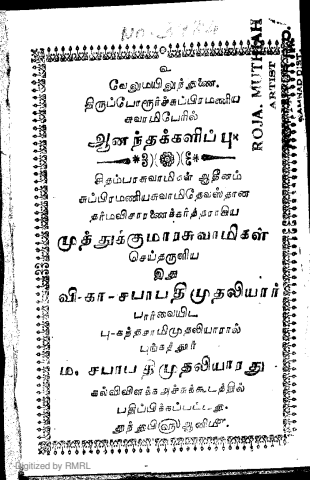 உ
வேலுமயிலுந்துணை.
திருப்போரூர்ச்சுப்பிரமணிய
சுவாமிபேரில்
ஆனந்தக்களிப்பு
சிதம்பரசுவாமிகள் ஆதீனம்
சுப்பிரமணியசுவாமிதேவஸ்தான
தர்மவிசாரணைக்கர்த்தராகிய
முத்துக்குமாரசுவாமிகள்
செய்தருளிய
இது
வி-கா-சபாபதிமுதலியார்
பார்வையிட
பு-கந்தசாமிமுதலியாரால்
புங்கத்தூர்
ம. சபாபதிமுதலியாரது
கல்விவிளக்கஅச்சுக்கூடத்தில்
பதிப்பிக்கப்பட்டது.
ROJA. MUTHIAH
ARTIST
Digitized by RMRL